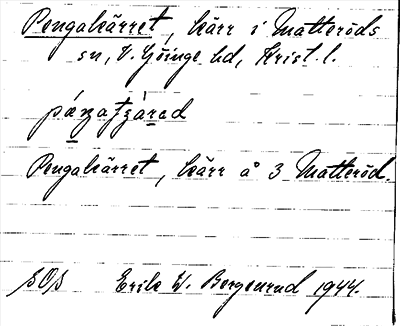 Pengakärret, kärr i Matteröds
sn, V. Göinge hd, Krist. l.
Pengakärret, kärr å 3 Matteröd.
SOS Erik W. Bergenrud 1944.